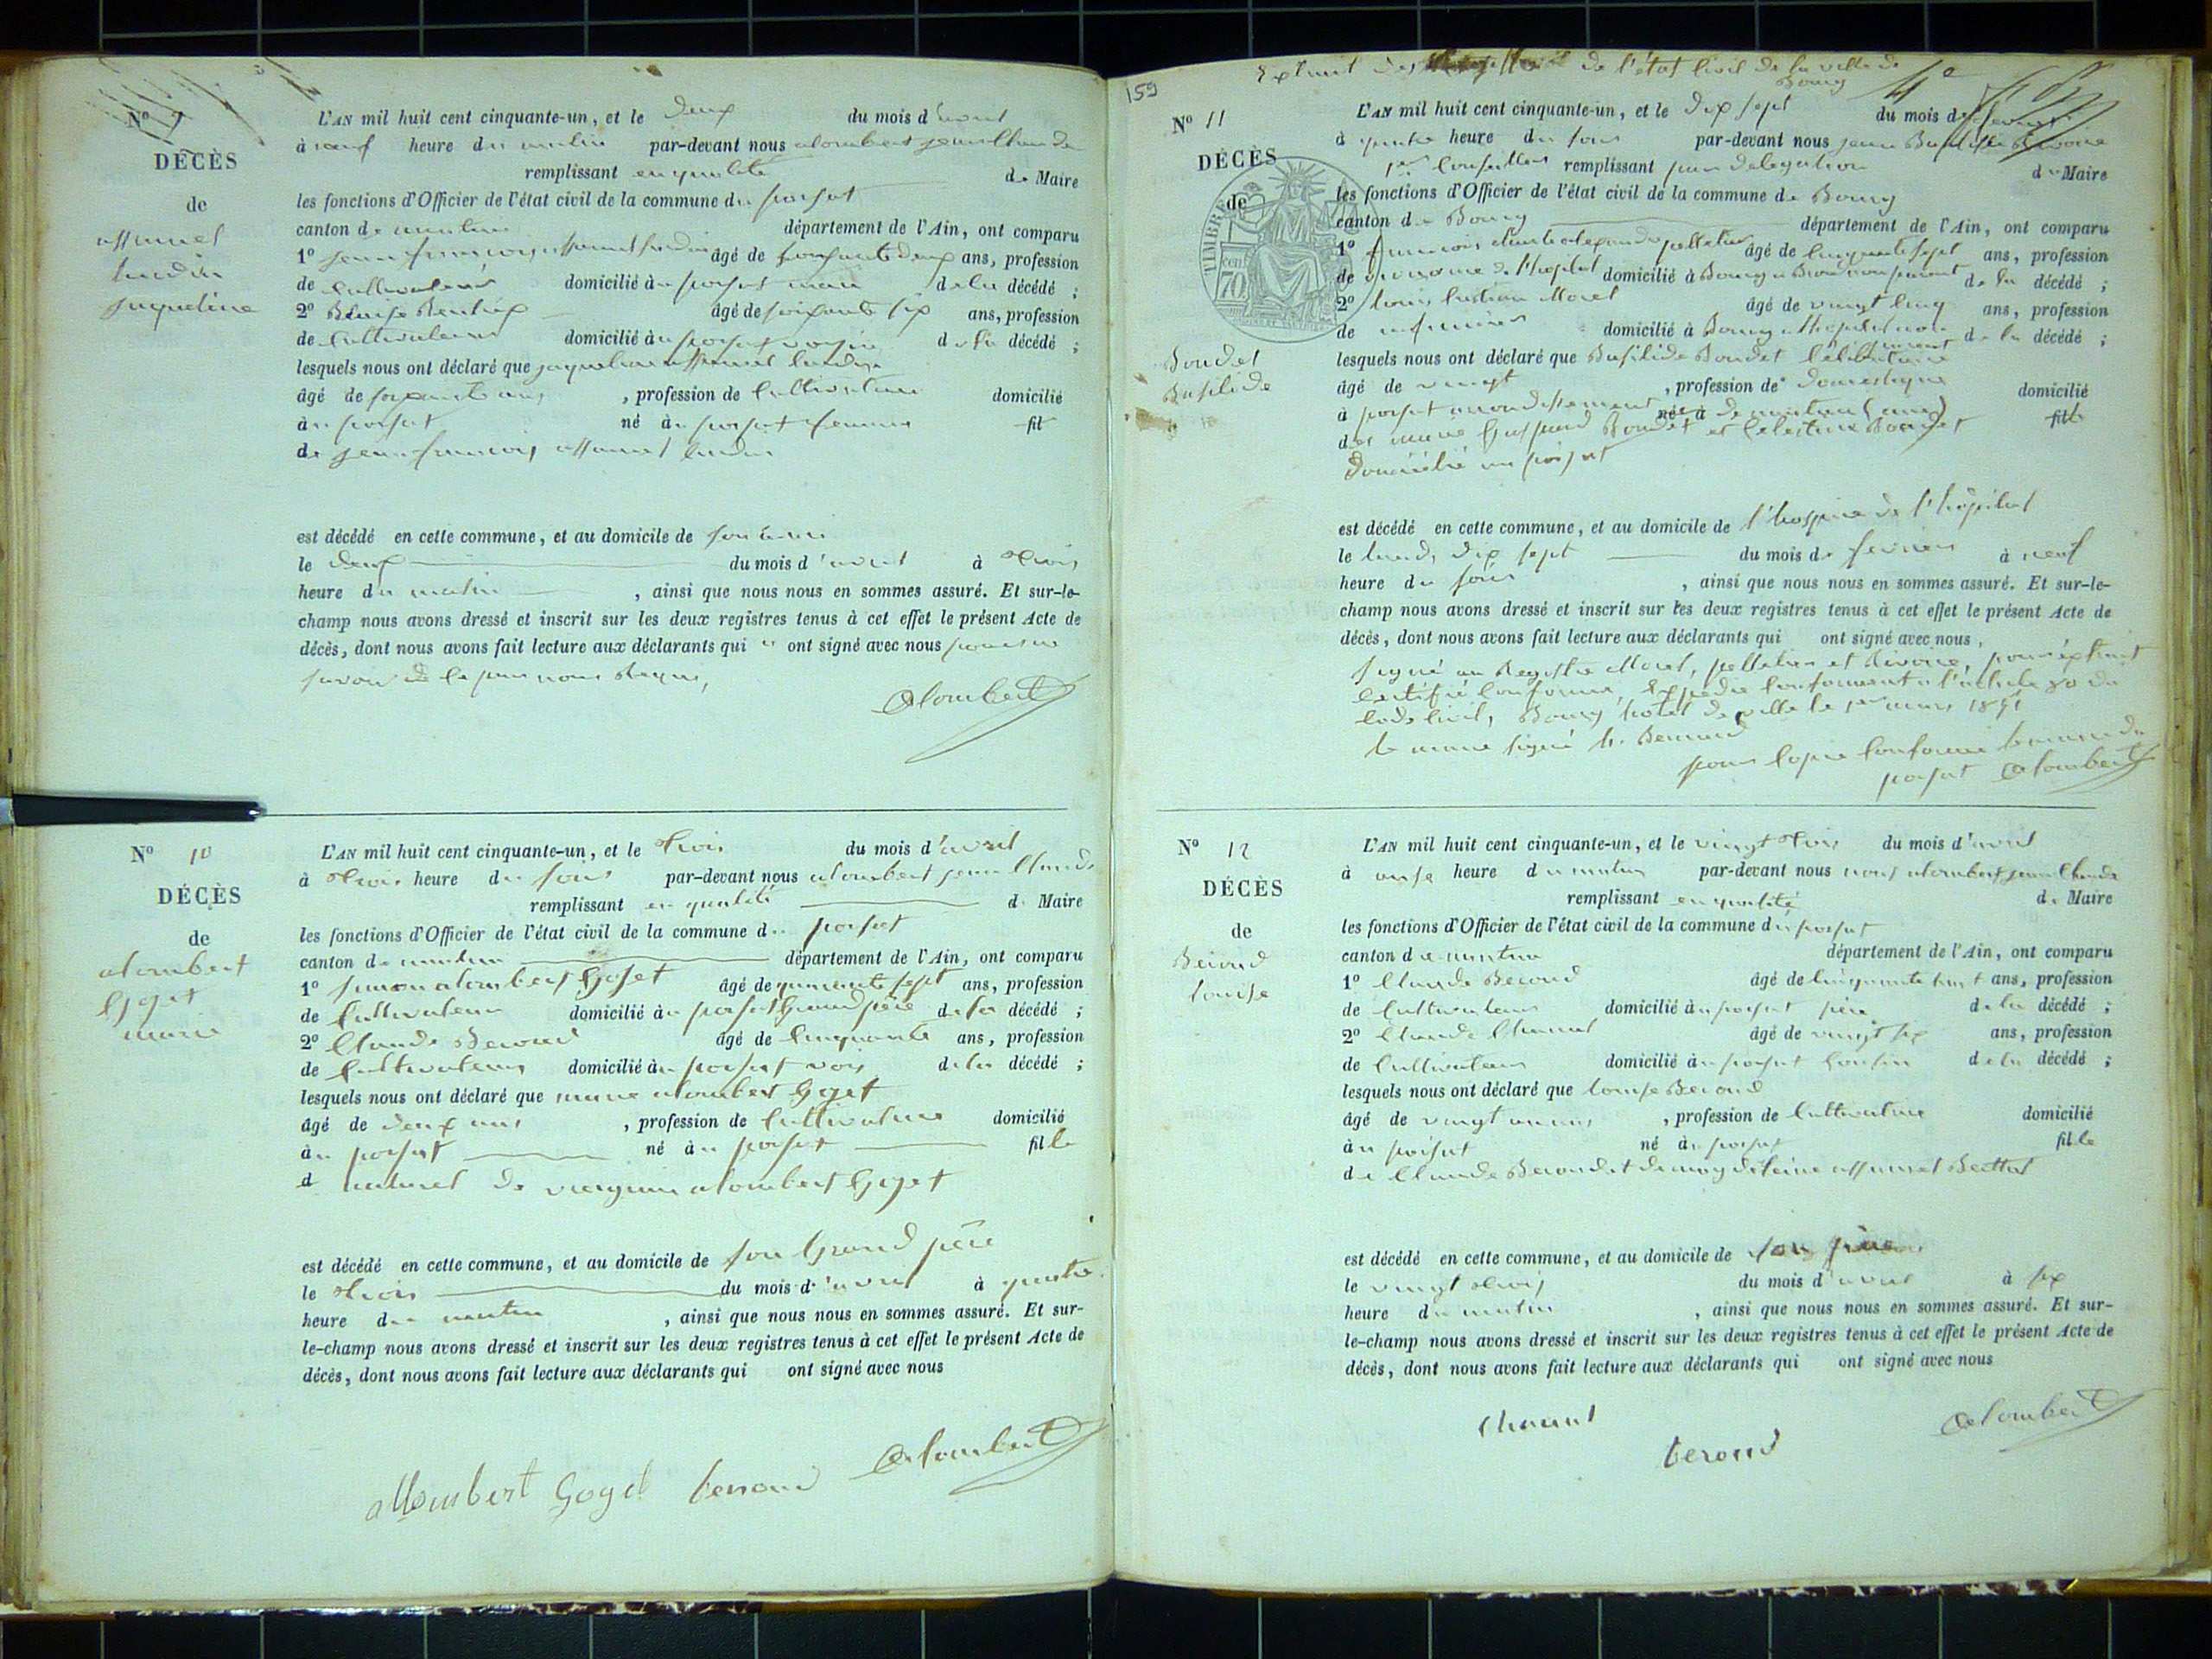 Nº 9
DÉCÈS
de
assumel
lurdin
jaqueline
L'AN mil huit cent cinquante-un, et le deux du mois d'avril
à neuf heure du matin par-devant nous alombert jean Claude
remplissant en qualité de Maire
les fonctions d'Officier de l'état civil de la commune du poisat
canton de nantua département de l'Ain, ont comparu
1º jean françois assumel lurdin âgé de soixante deux ans, profession
de Cultivateur domicilié au poisat mari de la décédé ;
2º Blaise âgé de soixante six ans, profession
de Cultivateur domicilié au poisat voisin de la décédé ;
lesquels nous ont déclaré que jaqueline assumel lurdin
âgé de soixante ans, profession de Cultivatrice domicilié
au poisat né au poisat femme fil
de jean françois assumel lurdin
est décédé en cette commune, et au domicile de son mari
le deux du mois d'avril à trois
heure du matin, ainsi que nous nous en sommes assuré. Et sur-le-
champ nous avons dressé et inscrit sur les deux registres tenus à cet effet le présent Acte de
décès, dont nous avons fait lecture aux déclarants qui n ont signé avec nous pour ne
savoir de ce par nous Requis,
Alombert
Nº 10
DÉCÈS
de
alombert
Goget
marie
L'AN mil huit cent cinquante-un, et le trois du mois d'avril
à trois heure du soir par-devant nous alombert jean Claude
remplissant en qualité d Maire
les fonctions d'Officier de l'état civil de la commune du poisat
canton de nantua département de l'Ain, ont comparu
1º simon alombert Goget âgé de quarante sept ans, profession
de Cultivateur domicilié au poisat Grand père de la décédé ;
2º Claude Beroud âgé de Cinquante ans, profession
de Cultivateur domicilié au poisat vois de la décédé ;
lesquels nous ont déclaré que marie alombert Goget
âgé de deux ans, profession de Cultivatrice domicilié
au poisat né au poisat fille
d naturel de virginie alombert Goget
est décédé en cette commune, et au domicile de son Grand père
le trois du mois d'avril à quatre
heure du matin, ainsi que nous nous en sommes assuré. Et sur-
le-champ nous avons dressé et inscrit sur les deux registres tenus à cet effet le présent Acte de
décès, dont nous avons fait lecture aux déclarants qui ont signé avec nous
allombert Goget beroud Alombert
159
Extrait des de l'état Civil de la ville de
Bourg
Nº 11
DÉCÈS
de
Boudet
Basilide
TIMBRE
70
L'AN mil huit cent cinquante-un, et le dix sept du mois de fevrier
à quatre heure du soir par-devant nous jean Baptiste
1er Conseiller remplissant par delegation d Maire
les fonctions d'Officier de l'état civil de la commune de Bourg
canton de Bourg département de l'Ain, ont comparu
1º françois alexandre pelletier âgé de Cinquante sept ans, profession
de econome de l'hopital domicilié à Bourg non parent de la décédé ;
2º Morel âgé de vingt Cinq ans, profession
de infirmier domicilié à Bourg a l'hopital non parent de la décédé ;
lesquels nous ont déclaré que Basilide Boudet Célibataire
âgé de vingt, profession de Domestique domicilié
à poisat arrondissement né à de nantua (ain) fille
des marie Gaspard Boudet et Celestine Boudet
Domicilié au poisat
est décédé en cette commune, et au domicile de l'hospice de l'hôpital
le lundi dix sept du mois de fevrier à neuf
heure du soir, ainsi que nous nous en sommes assuré. Et sur-le-
champ nous avons dressé et inscrit sur les deux registres tenus à cet effet le présent Acte de
décès, dont nous avons fait lecture aux déclarants qui ont signé avec nous,
signé au Registre Morel, pelletier et, pour extrait
Certifié Conforme, Expedié Conformement a l'article 80 du
Code Civil, Bourg hotel de ville le 1er mars 1851
le maire signé Bernard
pour Copie Conforme le maire du
poisat Alombert
Nº 12
DÉCÈS
de
Beroud
louise
L'AN mil huit cent cinquante-un, et le vingt trois du mois d'avril
à onze heure du matin par-devant nous nous alombert jean Claude
remplissant en qualité de Maire
les fonctions d'Officier de l'état civil de la commune du poisat
canton de nantua département de l'Ain, ont comparu
1º Claude Beroud âgé de Cinquante ans, profession
de Cultivateur domicilié au poisat père de la décédé ;
2º Claude Chanut âgé de vingt six ans, profession
de Cultivateur domicilié au poisat Cousin de la décédé ;
lesquels nous ont déclaré que louise Beroud
âgé de vingt un ans, profession de Cultivatrice domicilié
au poisat né au poisat fille
de Claude Beroud et assumel
est décédé en cette commune, et au domicile de son père
le vingt trois du mois d'avril à six
heure du matin, ainsi que nous nous en sommes assuré. Et sur-
le-champ nous avons dressé et inscrit sur les deux registres tenus à cet effet le présent Acte de
décès, dont nous avons fait lecture aux déclarants qui ont signé avec nous
Chanut
beroud
Alombert